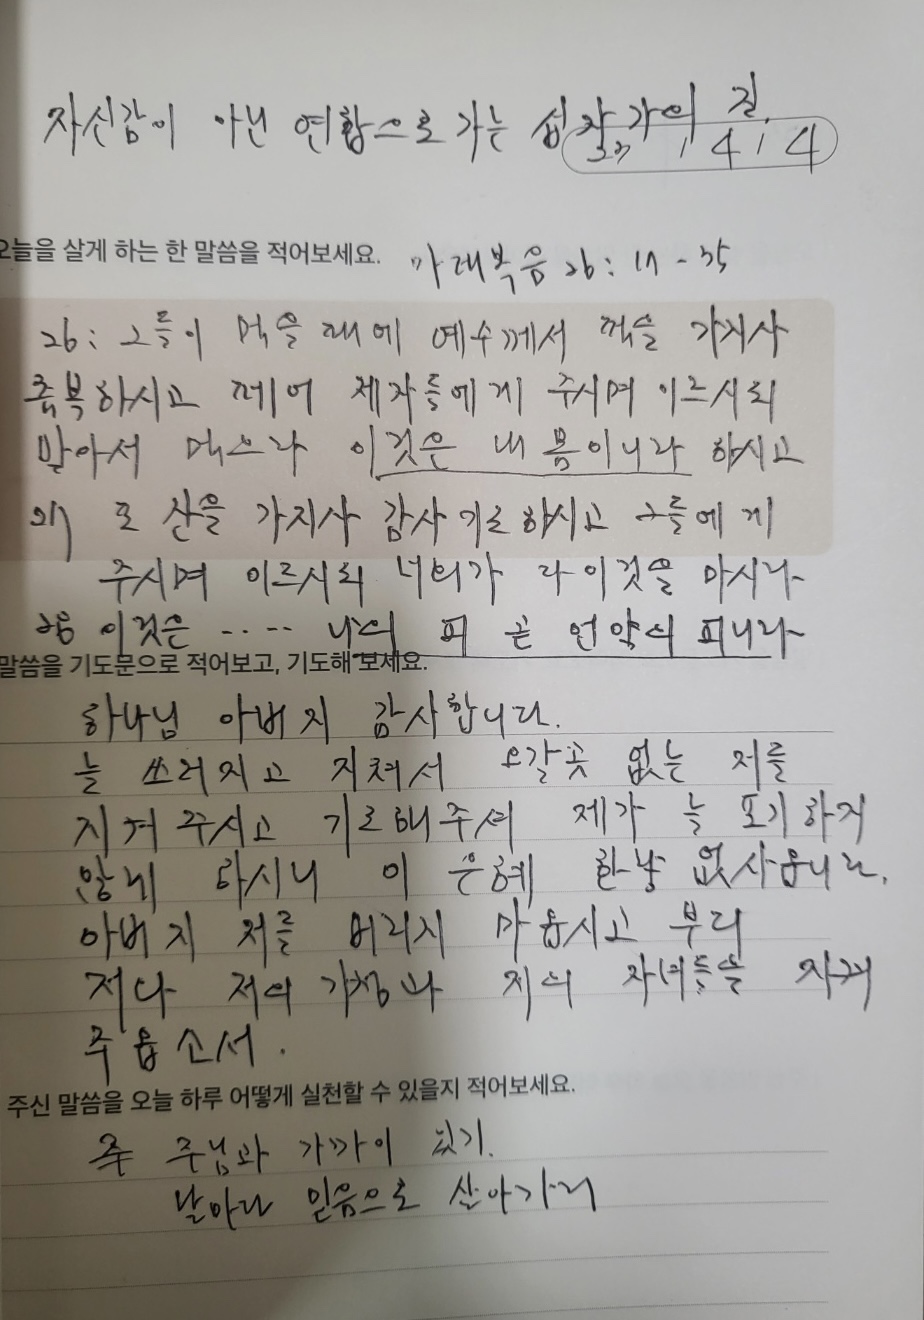 자신감이 아닌 연합으로 가는 십자가의 길.
37, 4, 4
오늘을 살게 하는 한 말씀을 적어보세요. 마태복음 26: 17 - 35
26: 그들이 먹을 때에 예수께서 떡을 가지사
축복하시고 떼어 제자들에게 주시며 이르시되
받아서 먹으라 이것은 내 몸이니라 하시고
27 또 잔을 가지사 감사 기도 하시고 그들에게
주시며 이르시되 너희가 다 이것을 마시라
28 이것은 ‥‥ 나의 피 곧 언약의 피니라
말씀을 기도문으로 적어보고, 기도해 보세요.
하나님 아버지 감사합니다.
늘 쓰러지고 지쳐서 오갈곳 없는 저를
지켜 주시고 기도해주셔 제가 늘 포기하지
않게 하시니 이 은혜 한량 없사옵니다.
아버지 저를 버리지 마옵시고 부디
저와 저의 가정과 저의 자녀들을 지켜
주옵소서.
주신 말씀을 오늘 하루 어떻게 실천할 수 있을지 적어보세요.
주님과 가까이 있기.
날마다 믿음으로 살아가기